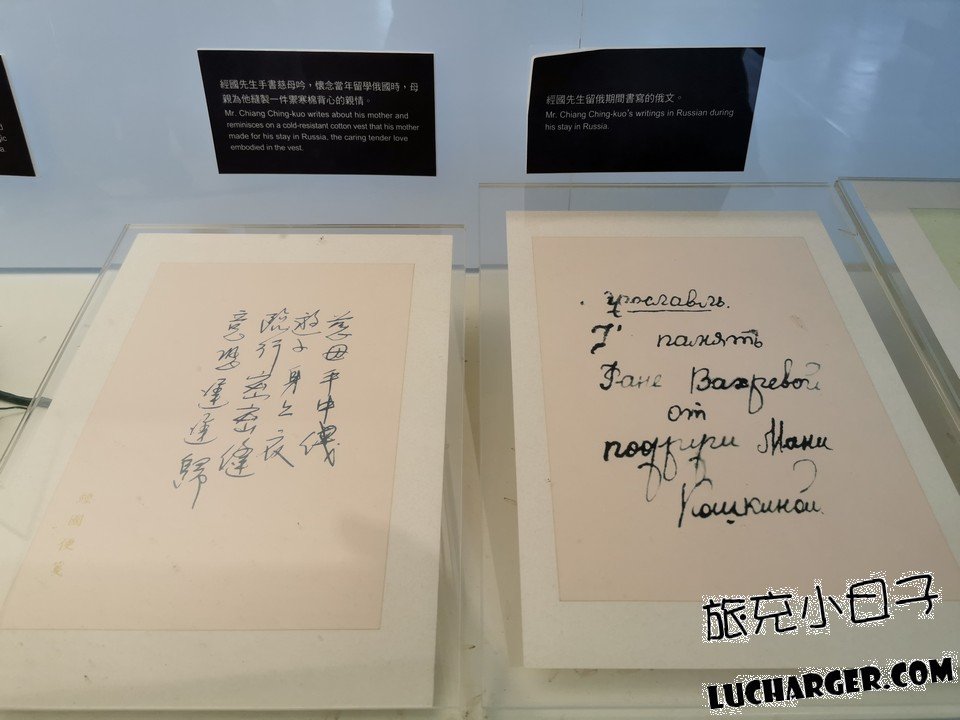 經國先生手書慈母吟，懷念當年留學俄國時，母
親為他縫製一件禦寒棉背心的親情。
Mr. Chiang Ching-kuo writes about his mother and
reminisces on a cold-resistant cotton vest that his mother
made for his stay in Russia, the caring tender love
embodied in the vest.
經國先生留俄期間書寫的俄文。
Mr. Chiang Ching-kuo's writings in Russian during
his stay in Russia.
慈母手中綫
遊子身上衣
臨行密密縫
意恐遲遲歸
經國便箋
Ярославль.
память
Фане Вахревой
от
подруги Мани
Кошкиной.
旅充小日子
LUCHARGER.COM